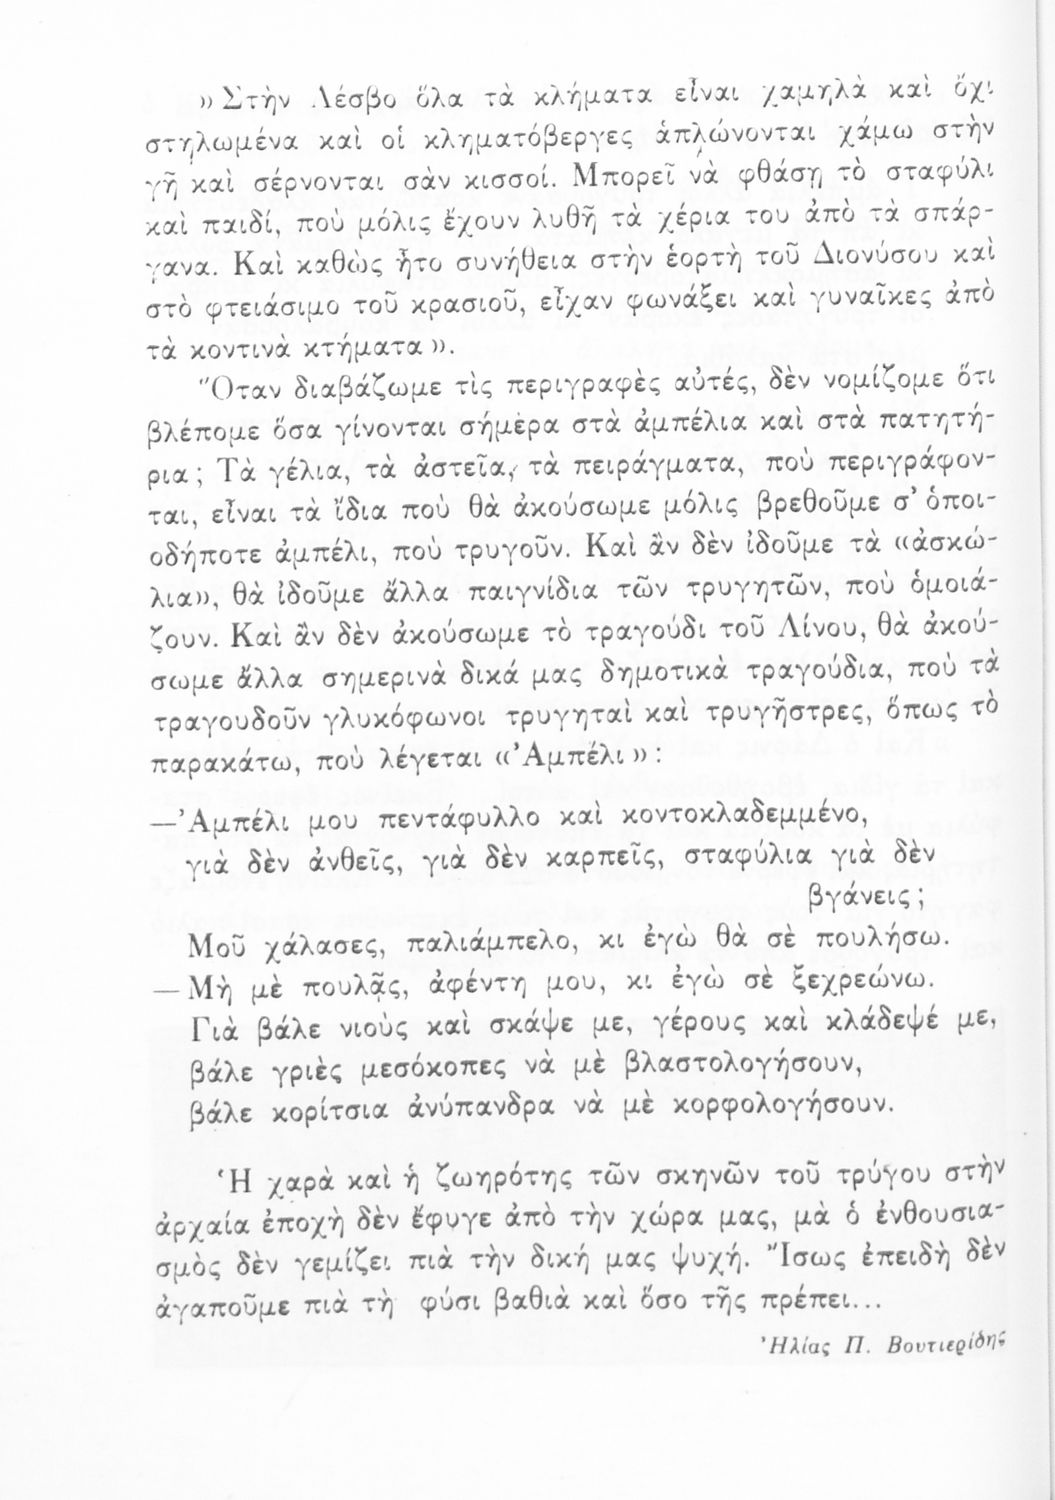 » Στὴν Λέσβο ὅλα τὰ κλήματα εἶναι χαμηλὰ καὶ ὄχι
στηλωμένα καὶ οἱ κληματόβεργες ἁπλώνονται χάμω στὴν
γῆ καὶ σέρνονται σὰν κισσοί. Μπορεῖ νὰ φθάσῃ τὸ σταφύλι
καὶ παιδί, ποὺ μόλις ἔχουν λυθῆ τὰ χέρια του ἀπὸ τὰ σπάρ-
γανα. Καὶ καθὼς ἦτο συνήθεια στὴν ἑορτὴ τοῦ Διονύσου καὶ
στὸ φτειάσιμο τοῦ κρασιοῦ, εἶχαν φωνάξει καὶ γυναῖκες ἀπὸ
τὰ κοντινὰ κτήματα ».
Ὅταν διαβάζωμε τὶς περιγραφὲς αὐτές, δὲν νομίζομε ὅτι
βλέπομε ὅσα γίνονται σήμερα στὰ ἀμπέλια καὶ στὰ πατητή-
ρια ; Τὰ γέλια, τὰ ἀστεῖα, τὰ πειράγματα, ποὺ περιγράφον-
ται, εἶναι τὰ ἴδια ποὺ θὰ ἀκούσωμε μόλις βρεθοῦμε σ' ὁποι-
οδήποτε ἀμπέλι, ποὺ τρυγοῦν. Καὶ ἂν δὲν ἰδοῦμε τὰ «ἀσκώ-
λια», θὰ ἰδοῦμε ἄλλα παιγνίδια τῶν τρυγητῶν, ποὺ ὁμοιά-
ζουν. Καὶ ἂν δὲν ἀκούσωμε τὸ τραγούδι τοῦ Λίνου, θὰ ἀκού-
σωμε ἄλλα σημερινὰ δικά μας δημοτικὰ τραγούδια, ποὺ τὰ
τραγουδοῦν γλυκόφωνοι τρυγηταὶ καὶ τρυγῆστρες, ὅπως τὸ
παρακάτω, ποὺ λέγεται «Ἀμπέλι » :
—Ἀμπέλι μου πεντάφυλλο καὶ κοντοκλαδεμμένο,
γιὰ δὲν ἀνθεῖς, γιὰ δὲν καρπεῖς, σταφύλια γιὰ δὲν
βγάνεις ;
Μοῦ χάλασες, παλιάμπελο, κι ἐγὼ θὰ σὲ πουλήσω.
— Μὴ μὲ πουλᾷς, ἀφέντη μου, κι ἐγὼ σὲ ξεχρεώνω.
Γιὰ βάλε νιοὺς καὶ σκάψε με, γέρους καὶ κλάδεψέ με,
βάλε γριὲς μεσόκοπες νὰ μὲ βλαστολογήσουν,
βάλε κορίτσια ἀνύπανδρα νὰ μὲ κορφολογήσουν.
Ἡ χαρὰ καὶ ἡ ζωηρότης τῶν σκηνῶν τοῦ τρύγου στὴν
ἀρχαία ἐποχὴ δὲν ἔφυγε ἀπὸ τὴν χώρα μας, μὰ ὁ ἐνθουσια-
σμὸς δὲν γεμίζει πιὰ τὴν δική μας ψυχή. Ἴσως ἐπειδὴ δὲν
ἀγαποῦμε πιὰ τὴ φύσι βαθιὰ καὶ ὅσο τῆς πρέπει...
Ἠλίας Π. Βουτιερίδης